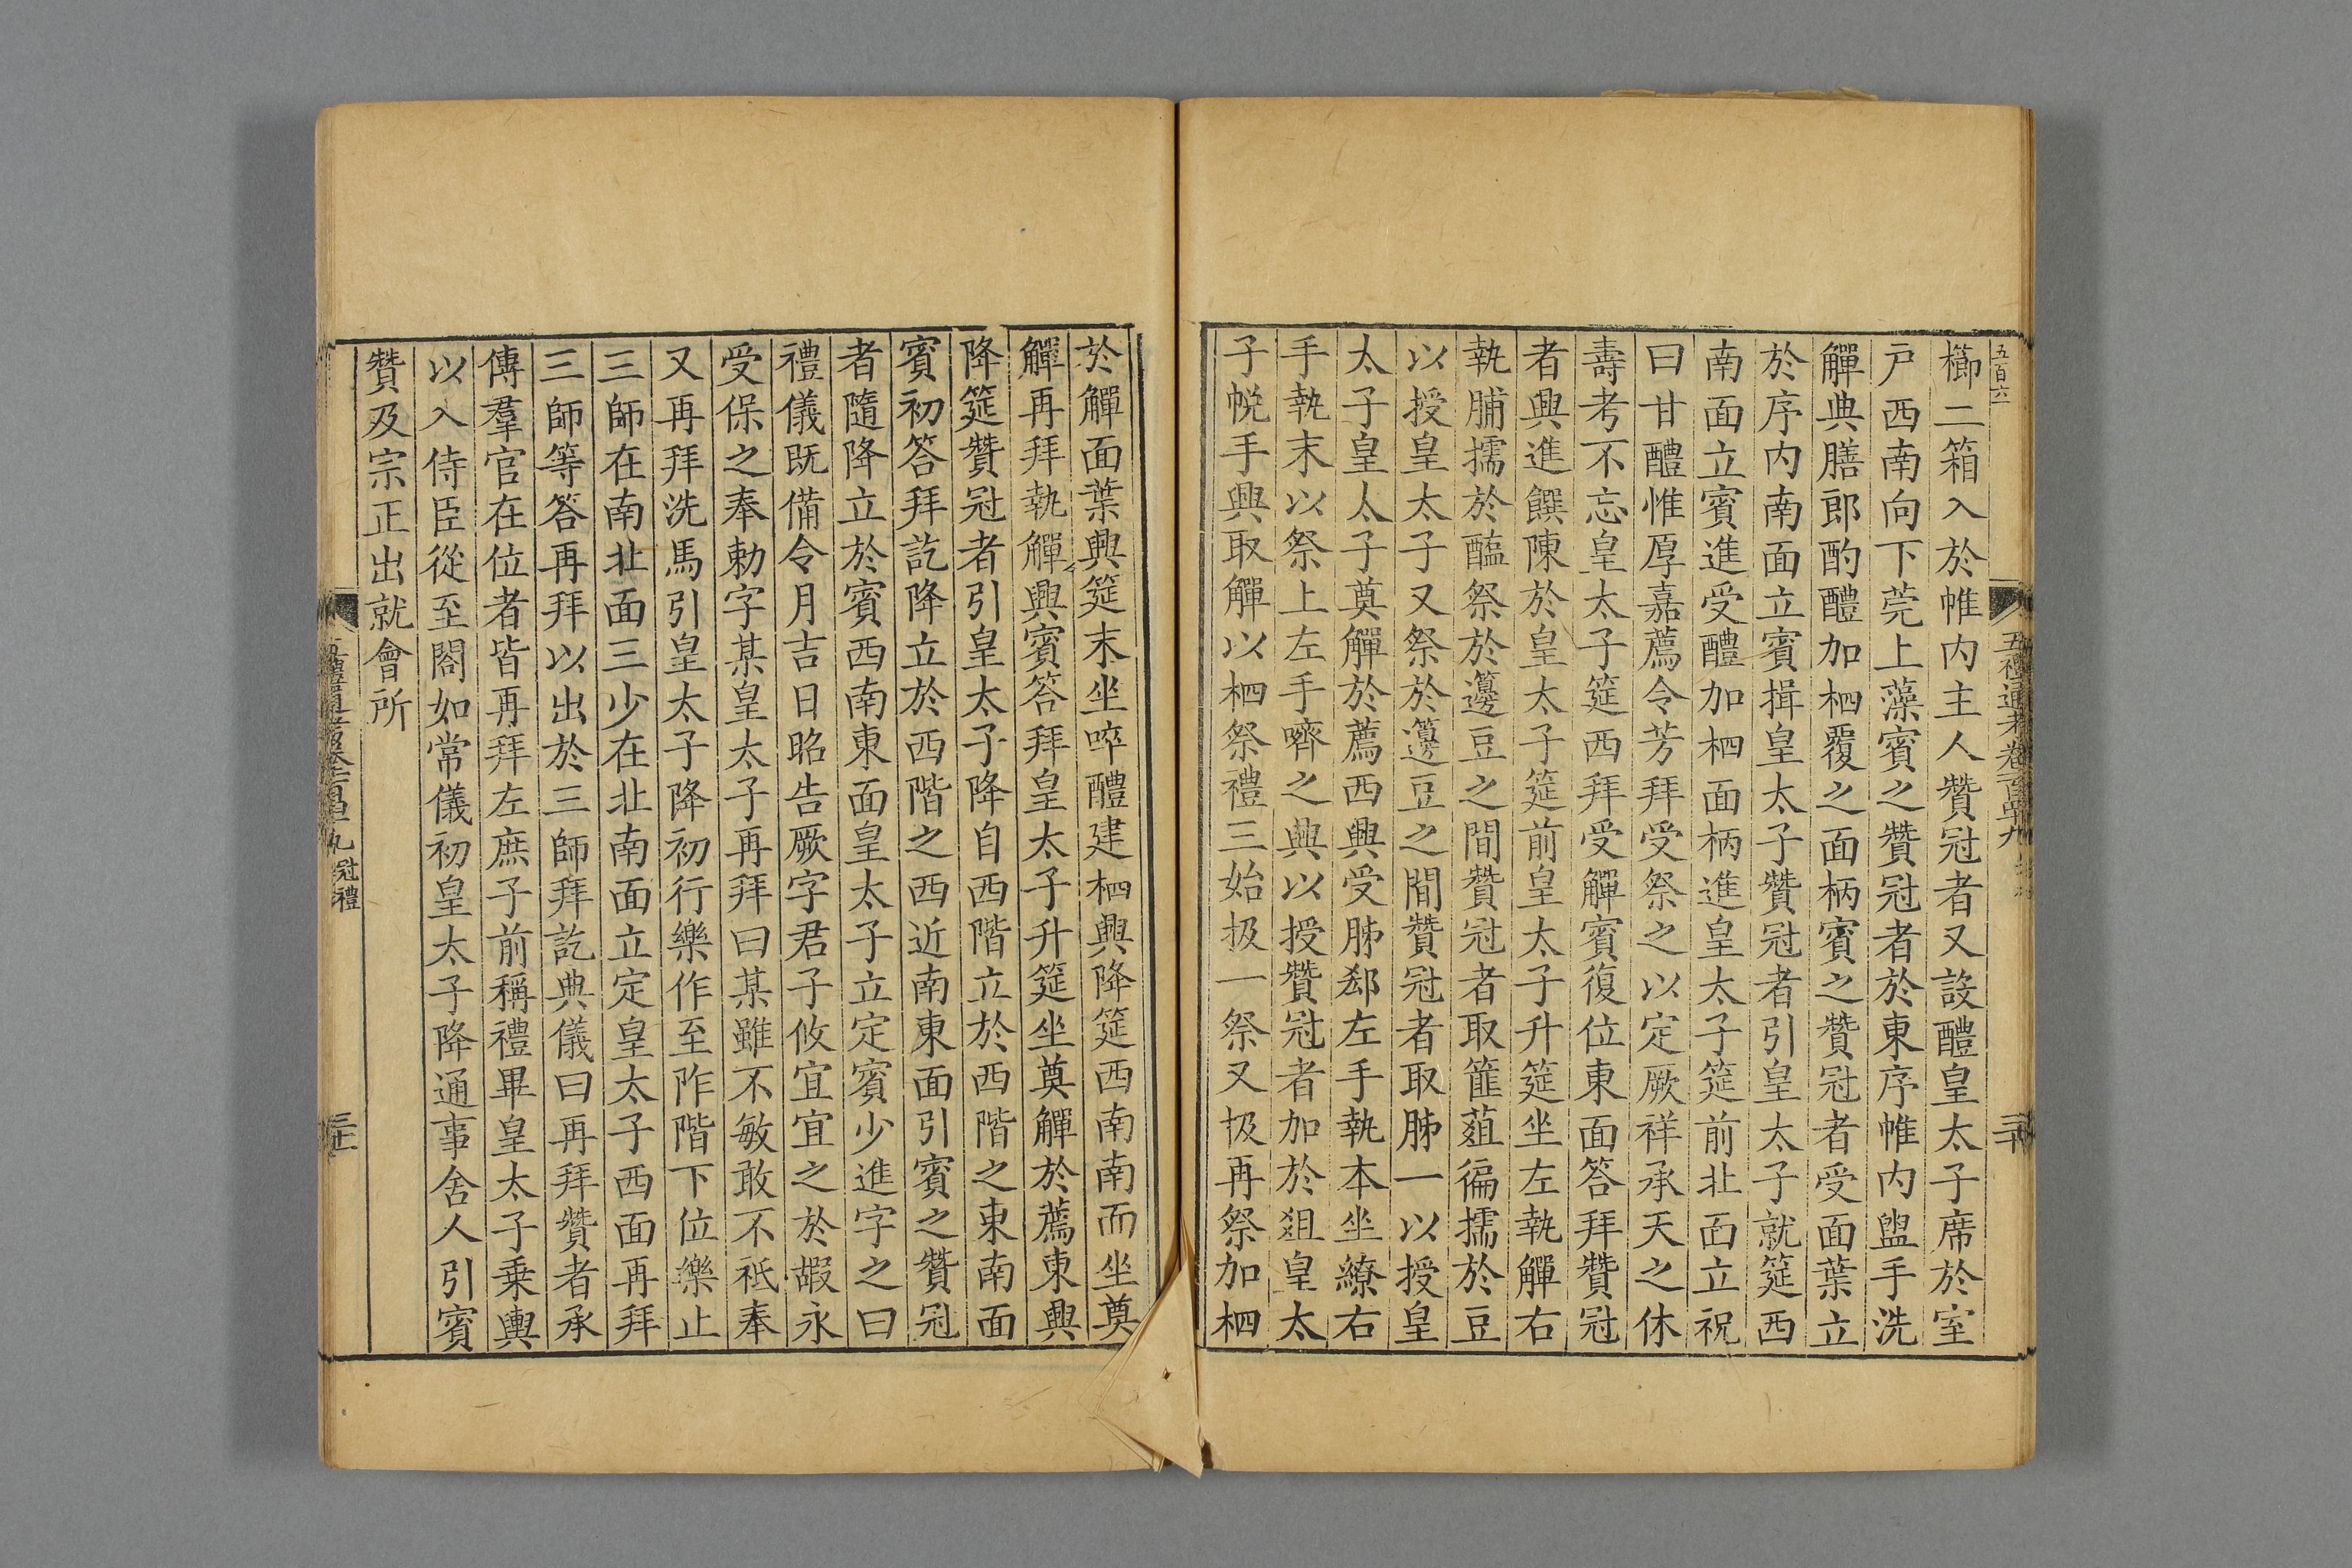 五百六
五禮通考卷一百四十九
二十
櫛二箱入於帷内主人贊冠者又設醴皇太子席於室
戸西南向下莞上藻賓之贊冠者於東序帷内盥手洗
觶典膳郎酌醴加柶覆之面柄賓之贊冠者受面葉立
於序内南面立賓揖皇太子贊冠者引皇太子就筵西
南面立賓進受醴加柶面柄進皇太子筵前北面立祝
曰甘醴惟厚嘉薦令芳拜受祭之以定厥祥承天之休
壽考不忘皇太子筵西拜受觶賓復位東面答拜贊冠
者興進饌陳於皇太子筵前皇太子升筵坐左執觶右
執脯擩於醢祭於籩豆之間贊冠者取韮菹徧擩於豆
以授皇太子又祭於籩豆之間贊冠者取胏一以授皇
太子皇太子奠觶於薦西興受胏郄左手執本坐繚右
手執末以祭上左手嚌之興以授贊冠者加於俎皇太
子帨手興取觶以柶祭禮三始扱一祭又扱再祭加柶
於觶面葉興筵末坐啐醴建柶興降筵西南南而坐奠
觶再拜執觶興賓答拜皇太子升筵坐奠觶於薦東興
降筵贊冠者引皇太子降自西階立於西階之東南面
賓初答拜訖降立於西階之西近南東面引賓之贊冠
者隨降立於賓西南東面皇太子立定賓少進字之曰
禮儀既備令月吉日昭告厥字君子攸宜宜之於嘏永
受保之奉勅字某皇太子再拜曰某雖不敏敢不祗奉
又再拜洗馬引皇太子降初行樂作至阼階下位樂止
三師在南北面三少在北南面立定皇太子西面再拜
三師等答再拜以出於三師拜訖典儀曰再拜贊者承
傳羣官在位者皆再拜左庶子前稱禮畢皇太子乗輿
以入侍臣從至閤如常儀初皇太子降通事舍人引賓
贊及宗正出就會所
五禮通考卷一百四十九 冠禮
二十一